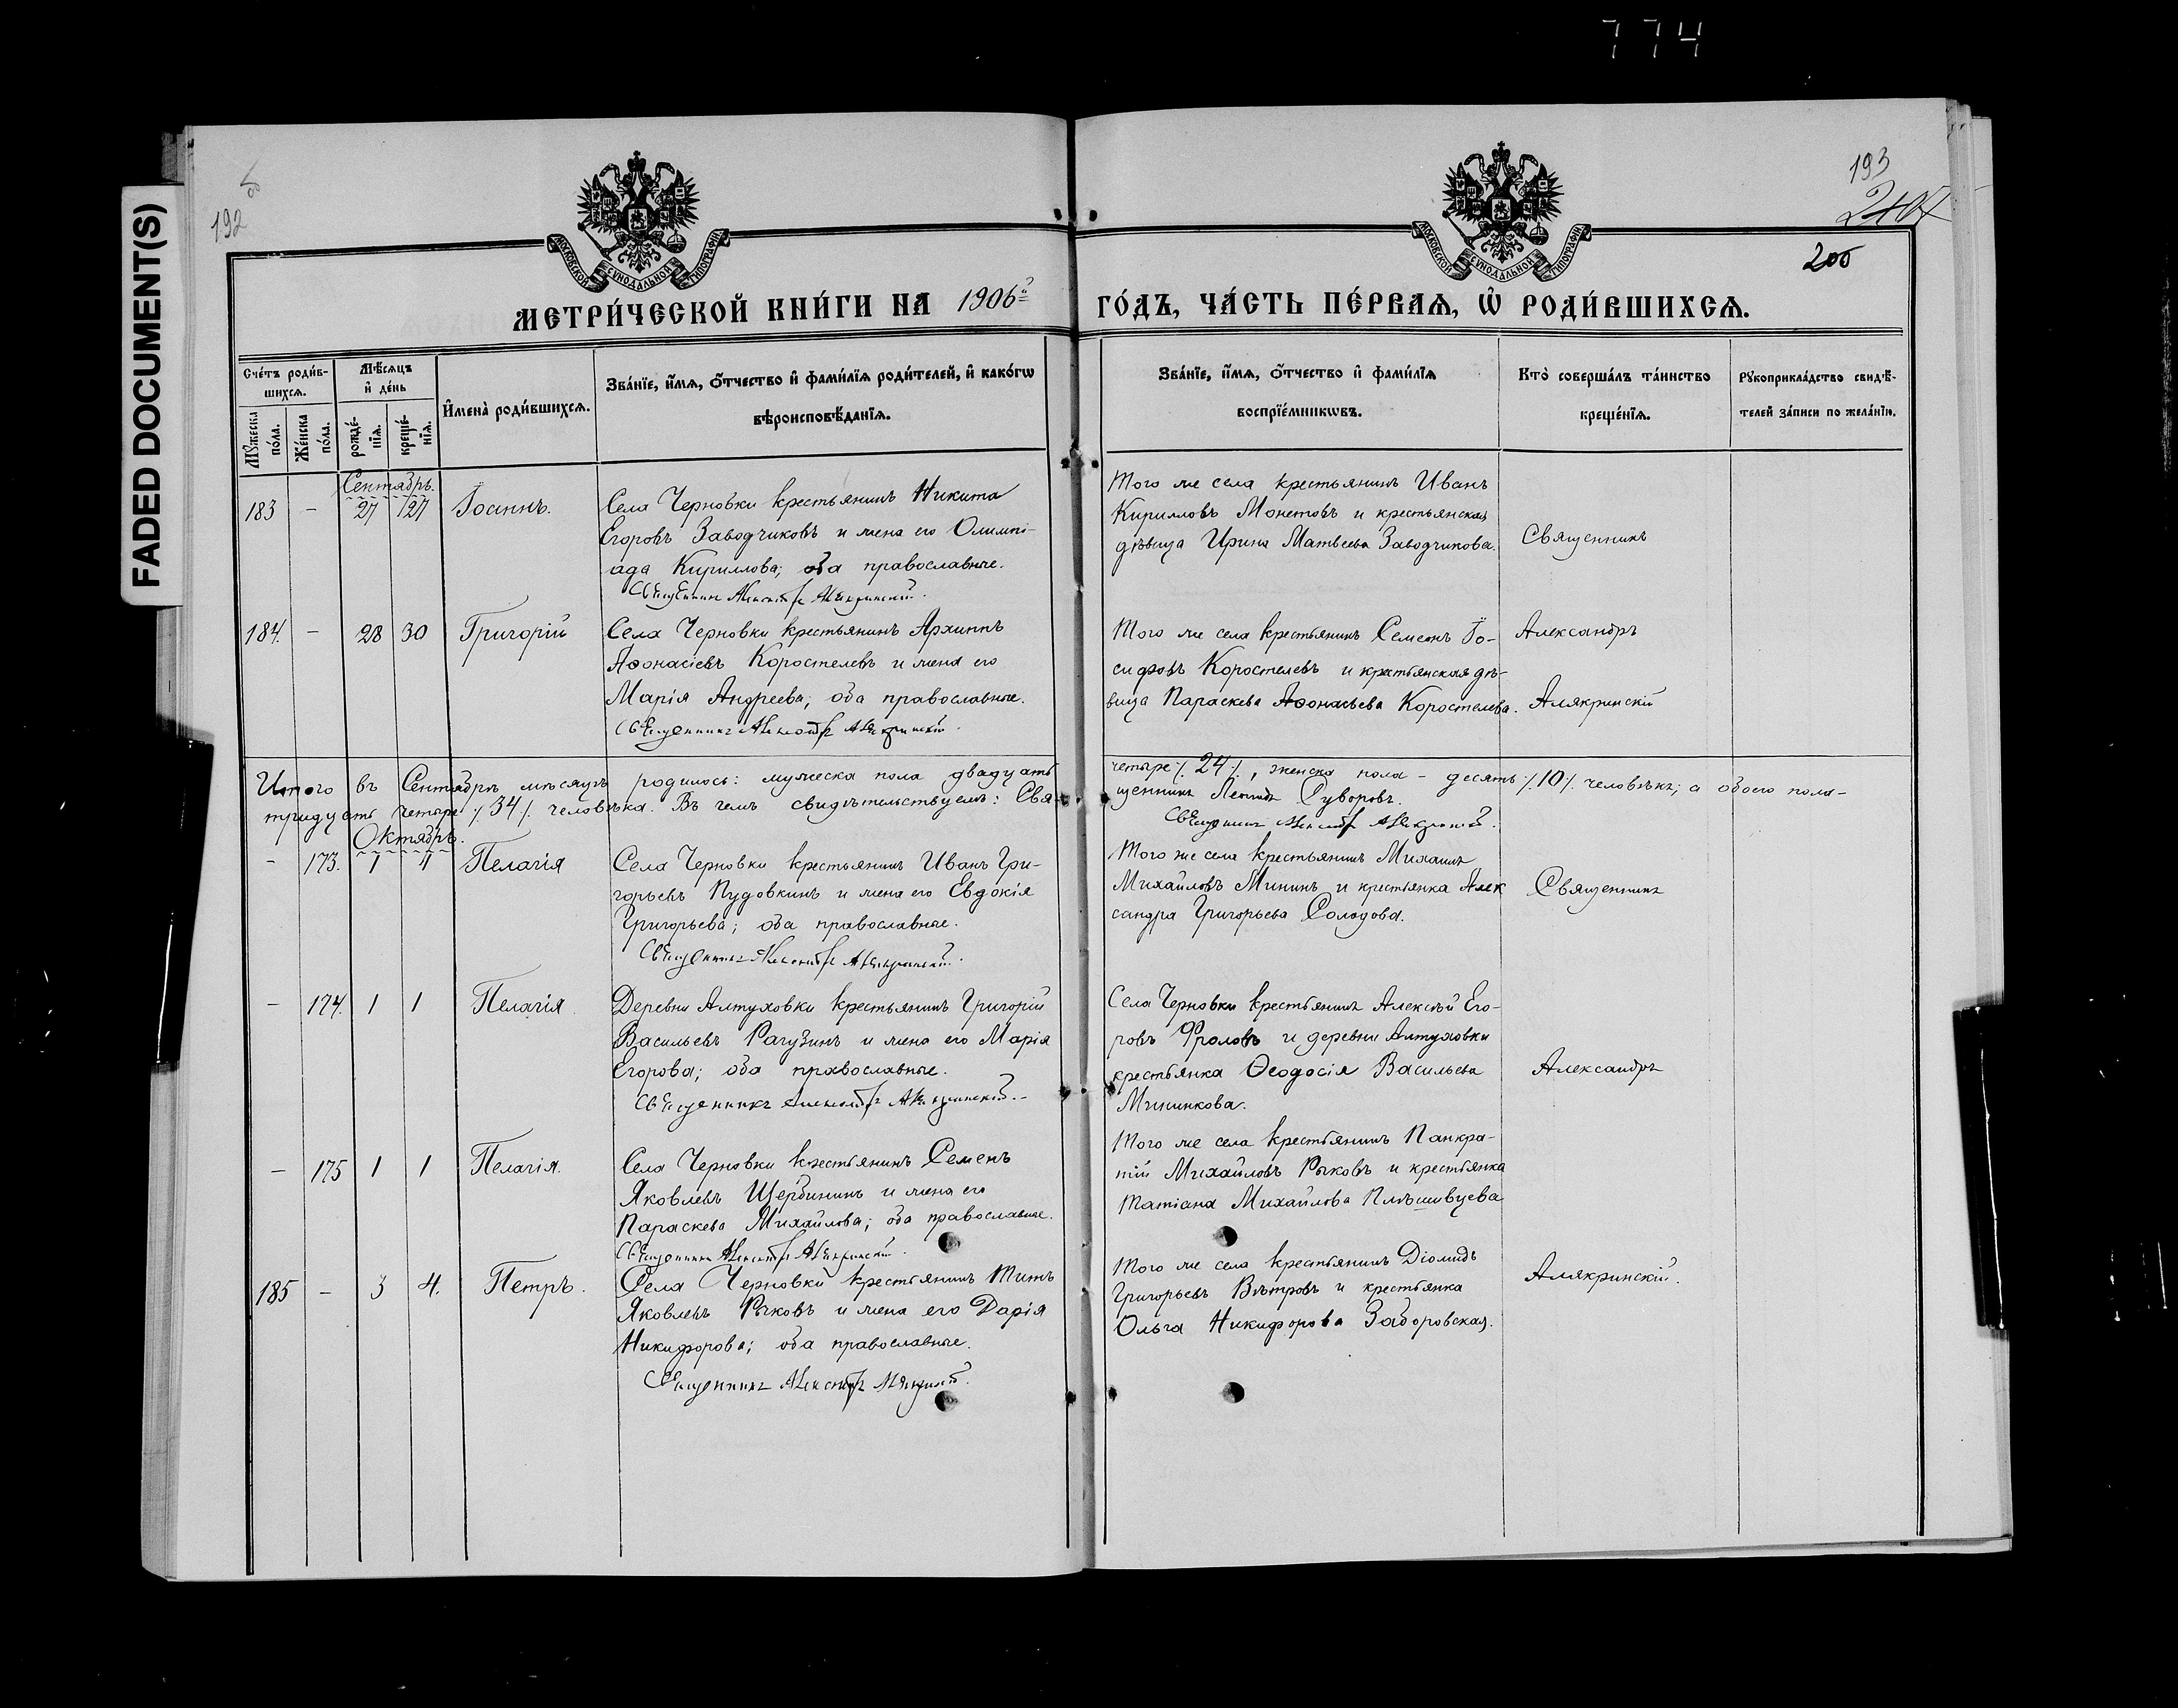 774
FADED DOCUMENT(S)
192
193
200
МОСКОВСКОЙ СѴНОДАЛЬНОЙ ТИПОГРАФІИ
МОСКОВСКОЙ СѴНОДАЛЬНОЙ ТИПОГРАФІИ
МЕТРИ́ЧЕСКОЙ КНИ́ГИ НА 1906й ГО́ДЪ, ЧА́СТЬ ПЕ́РВАѦ, Ѡ҆ РОДИ́ВШИХСѦ.
Сче́тъ роди́в-
шихсѧ.
Мꙋ́жеска по́ла.
Же́нска по́ла.
Мѣ́сѧцъ
и҆ де́нь
рожде́-
нїѧ.
креще́-
нїѧ.
И҆мена̀ роди́вшихсѧ.
Зва́нїе, и҆́мѧ, ѻ҆́тчество и҆ фами́лїѧ роди́телей, и҆ како́гѡ
вѣроисповѣ́данїѧ.
Зва́нїе, и҆́мѧ, ѻ҆́тчество и҆ фами́лїѧ
воспрїе́мникѡвъ.
Кто̀ соверша́лъ та́инство
креще́нїѧ.
Рꙋкоприкла́дство свидѣ́-
телей за́писи по жела́нїю.
Сентябрь.
183 - 27 27 Іоаннъ.
Села Черновки крестьянинъ Никита
Егоровъ Заводчиковъ и жена его Олимпі-
ада Кириллова; оба православные.
Священникъ Александръ Алякринскій.
Того же села крестьянинъ Иванъ
Кирилловъ Монетовъ и крестьянская
дѣвица Ирина Матвеева Заводчикова.
Священникъ
184. - 28 30 Григорій
Села Черновки крестьянинъ Архиппъ
Аѳонасіевъ Коростелевъ и жена его
Марія Андреева; оба православные.
Священникъ Александръ Алякринскій.
Того же села крестьянинъ Семенъ Іо-
сифовъ Коростелевъ и крестьянская дѣ-
вица Параскева Аѳонасьева Коростелева.
Александръ
Алякринскій
Итого въ Сентябрѣ мѣсяцѣ родилось: мужеска пола двадцать четыре ٪ 24 ٪, женска пола - десять ٪ 10 ٪ человѣкъ; а обоего пола-
тридцать четыре ٪ 34 ٪ человѣка. Въ чемъ свидѣтельствуемъ: Свя-
щенникъ Леонидъ Суворовъ.
Священникъ Александръ Алякринскій.
Октябрь.
- 173. 1 4 Пелагія
Села Черновки крестьянинъ Иванъ Гри-
горьевъ Пудовкинъ и жена его Евдокія
Григорьева; оба православные.
Священникъ Александръ Алякринскій.
Того же села крестьянинъ Михаилъ
Михайловъ Мининъ и крестьянка Алек
сандра Григорьева Солодова.
Священникъ
- 174. 1 1 Пелагія.
Деревни Алтуховки крестьянинъ Григорій
Васильевъ Рагузинъ и жена его Марія
Егорова; оба православные.
Священникъ Александръ Алякринскій.-
Села Черновки крестьянинъ Алексѣй Его-
ровъ Фроловъ и деревни Алтуховки
крестьянка Ѳеодосія Васильева
Мининкова.
Александръ
- 175 1 1 Пелагія.
Села Черновки крестьянинъ Семенъ
Яковлевъ Щербининъ и жена его
Параскева Михайлова; оба православные.
Священникъ Александръ Алякринскій.
Того же села крестьянинъ Панкра-
тій Михайловъ Рыковъ и крестьянка
Татіана Михайлова Плѣшивцева
185 - 3 4. Петръ.
Села Черновки крестьянинъ Титъ
Яковлевъ Рыковъ и жена его Дарія
Никифорова; оба православные.
Священникъ Александръ Алякринскій.
Того же села крестьянинъ Діомидъ
Григорьевъ Вѣтровъ и крестьянка
Ольга Никифорова Заборовская.
Алякринскій.